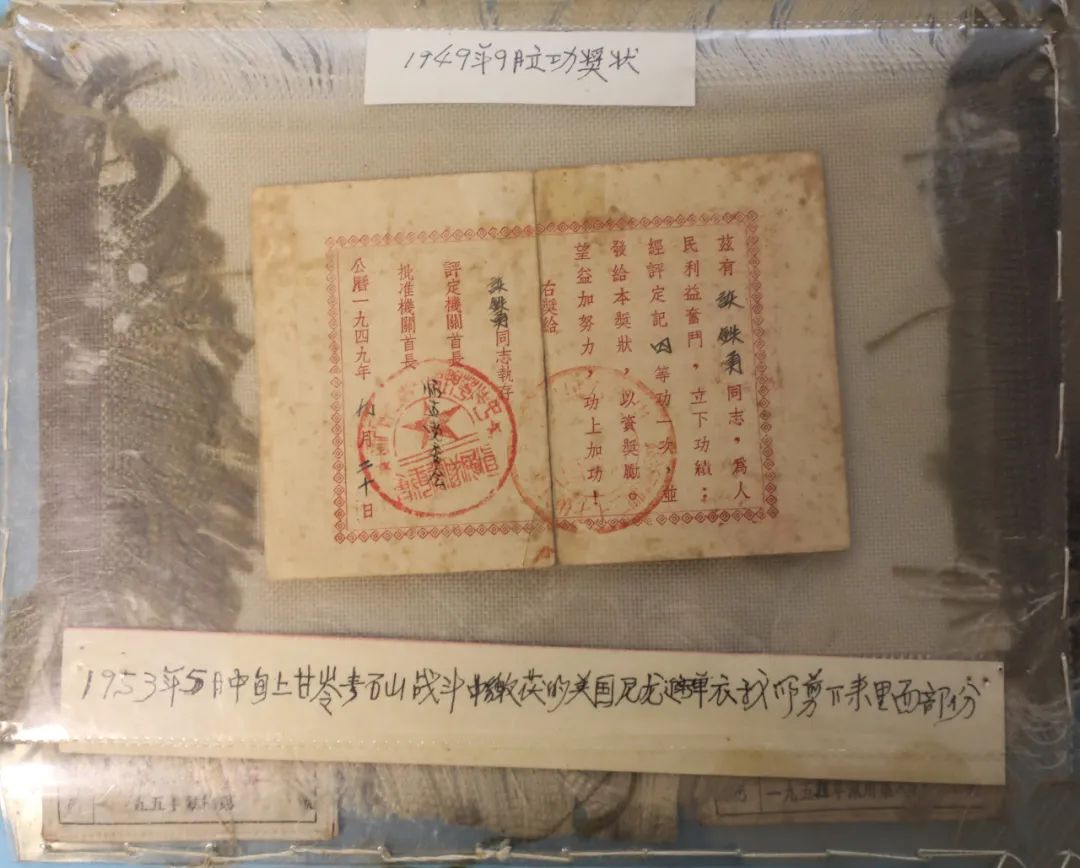 1949年9月立功獎状
茲有 張鉄勇 同志，爲人
民利益奮鬥，立下功績；
經評定記 四 等功一次，並
發給本獎狀，以資獎勵。
望益加努力，功上加功！
右獎給
張鉄勇 同志執存
評定機關首長
批准機關首長
公曆一九四九年 九月 二十日
1953年5月中旬上甘岭青石山战斗中缴获的美国尼龙避弹衣我所剪下来里面部份